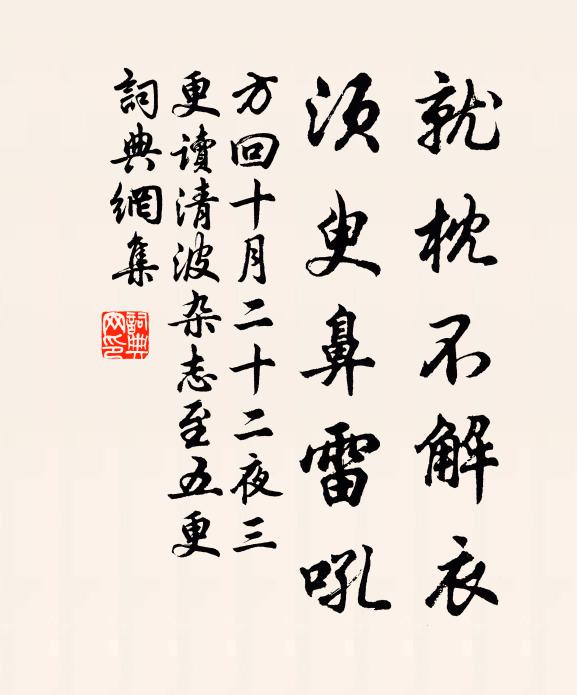 就枕不解衣
须臾鼻雷吼
方回十月二十二夜三
更读清波杂志至五更
詞典網集
詞典网印